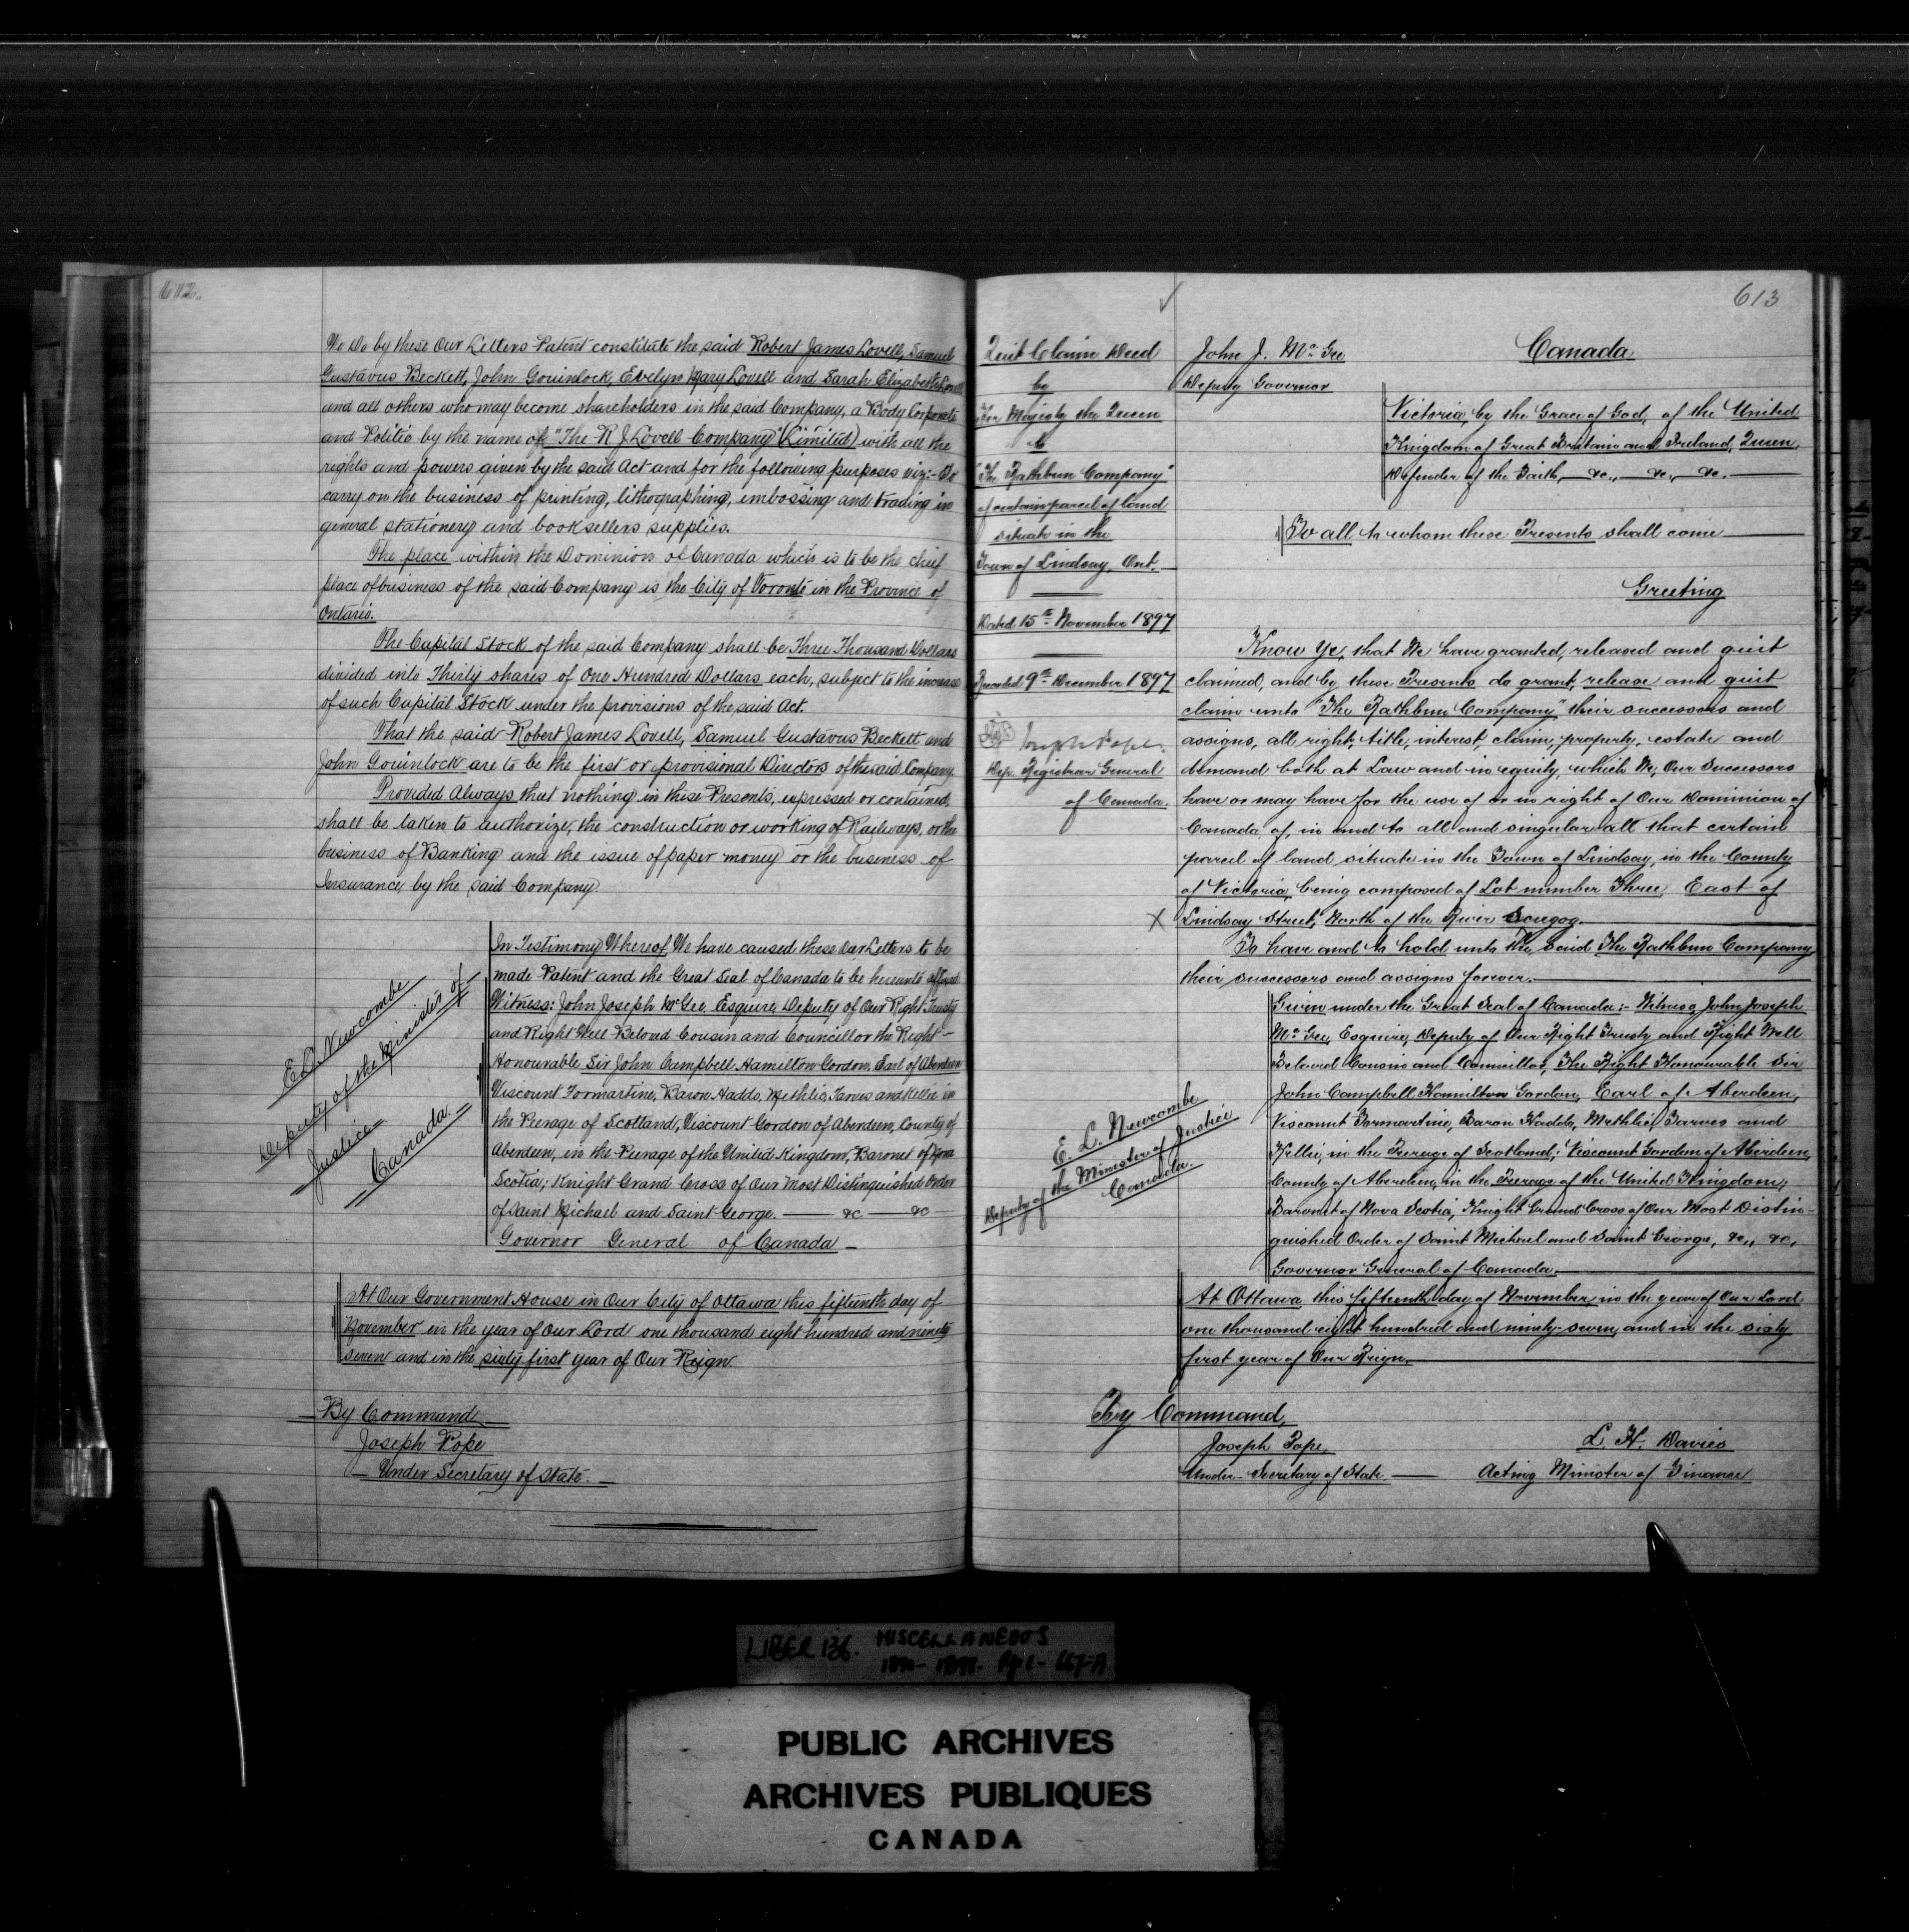 612.
We Do by these Our Letters Patent constitute the said Robert James Lovell, Samuel
Gustavus Beckett, John Gouinlock, Evelyn Mary Lovell and Sarah Elizabeth Lovell
and all others who may become shareholders in the said Company, a Body Corporate
and Politic by the name of "The R J Lovell Company" (Limited) with all the
rights and powers given by the said Act and for the following purposes viz:- To
carry on the business of printing, lithographing, embossing and trading in
general stationery and booksellers supplies.
The place within the Dominion of Canada which is to be the chief
place of business of the said Company is the City of Toronto in the Province of
Ontario.
The Capital Stock of the said Company shall be Three Thousand Dollars
divided into Thirty shares of One Hundred Dollars each, subject to the increase
of such Capital Stock under the provisions of the said Act.
That the said Robert James Lovell, Samuel Gustavus Beckett and
John Gouinlock are to be the first or provisional Directors of the said Company.
Provided Always that nothing in these Presents, expressed or contained,
shall be taken to authorize, the construction or working of Railways, or the
business of Banking and the issue of paper money or the business of
Insurance by the said Company
In Testimony Whereof We have caused these Our Letters to be
made Patent and the Great Seal of Canada to be hereunto affixed
Witness: John Joseph McGee, Esquire, Deputy of Our Right Trusty
and Right Well-Beloved Cousin and Councillor the Right-
Honourable Sir John Campbell Hamilton Gordon, Earl of Aberdeen
Viscount Formartine, Baron Haddo, Methlic, Tarves and Kellie in
the Peerage of Scotland, Viscount Gordon of Aberdeen, County of
Aberdeen, in the Peerage of the United Kingdom, Baronet of Nova
Scotia; Knight Grand Cross of Our Most Distinguished Order
of Saint Michael and Saint George. &c &c
Governor General of Canada
E.L. Newcombe
Deputy of the Minister of
Justice
Canada.
At Our Government House in Our City of Ottawa this fifteenth day of
November in the year of Our Lord one thousand eight hundred and ninety
seven and in the sixty first year of Our Reign.
By Command
Joseph Pope
Under Secretary of State.
613
Quit Claim Deed
by
Her Majesty the Queen
to
"The Rathbun Company"
of certain parcel of land
situate in the
Town of Lindsay, Ont.
Dated 15th November 1897
Recorded 9th December 1897
Joseph Pope
Dep. Registrar General
of Canada.
John J. McGee
Deputy Governor
Canada
Victoria, by the Grace of God, of the United
Kingdom of Great Britain and Ireland, Queen,
Defender of the Faith, &c., &c., &c.
To all to whom these Presents shall come
Greeting
Know Ye, that We have granted, released and quit
claimed, and by these Presents do grant, release and quit
claim unto "The Rathbun Company" their successors and
assigns, all right, title, interest, claim, property, estate and
demand both at Law and in equity, which We, Our Successors
have or may have for the use of or in right of Our Dominion of
Canada of, in and to all and singular all that certain
parcel of land situate in the Town of Lindsay, in the County
of Victoria, being composed of Lot number Three, East of
X Lindsay Street, North of the River Scugog.
To have and to hold unto the said The Rathbun Company
their successors and assigns forever.
Given under the Great Seal of Canada:- Witness, John Joseph
McGee, Esquire, Deputy of Our Right Trusty and Right Well
Beloved Cousin and Councillor, The Right Honourable Sir
John Campbell Hamilton Gordon, Earl of Aberdeen,
Viscount Formartine, Baron Haddo, Methlic, Tarves and
Kellie, in the Peerage of Scotland; Viscount Gordon of Aberdeen,
County of Aberdeen, in the Peerage of the United Kingdom;
Baronet of Nova Scotia, Knight Grand Cross of Our Most Distin-
guished Order of Saint Michael and Saint George, &c., &c.,
Governor General of Canada.
E. L. Newcombe
Deputy of the Minister of Justice
Canada.
At Ottawa, this fifteenth day of November, in the year of Our Lord
one thousand eight hundred and ninety-seven, and in the sixty
first year of Our Reign.
By Command,
Joseph Pope,
Under-Secretary of State
L. H. Davies
Acting Minister of Finance
LIBER 136. MISCELLANEOUS
PUBLIC ARCHIVES
ARCHIVES PUBLIQUES
CANADA